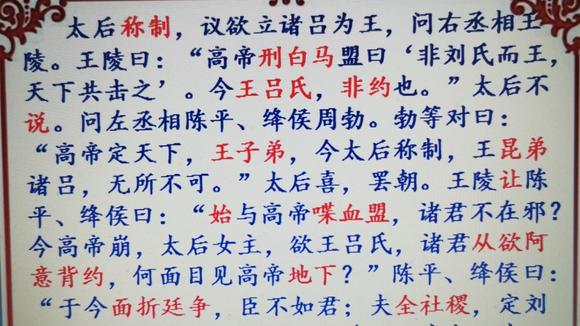 太后称制，议欲立诸吕为王，问右丞相王
陵。王陵曰：“高帝刑白马盟曰‘非刘氏而王，
天下共击之’。今王吕氏，非约也。”太后不
说。问左丞相陈平、绛侯周勃。勃等对曰：
“高帝定天下，王子弟，今太后称制，王昆弟
诸吕，无所不可。”太后喜，罢朝。王陵让陈
平、绛侯曰：“始与高帝喋血盟，诸君不在邪？
今高帝崩，太后女主，欲王吕氏，诸君从欲阿
意背约，何面目见高帝地下？”陈平、绛侯曰：
“于今面折廷争，臣不如君；夫全社稷，定刘